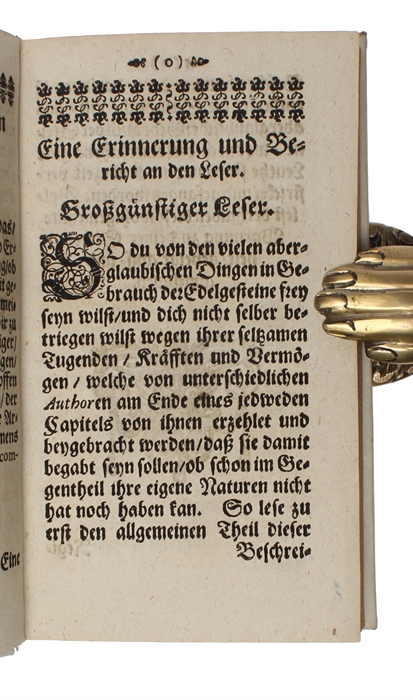 n
das/
d Er-
g/ob
it ge-
mei-
ir zu
iger/
gen/
offen
/der
e Ar-
mens
com-
Eine
(0)
Eine Erinnerung und Be-
richt an den Leser.
Großgünstiger Leser.
SO du von den vielen aber-
glaubischen Dingen in Ge-
brauch der Edelgesteine frey
seyn wilst/und dich nicht selber be-
triegen wilst wegen ihrer seltzamen
Tugenden / Kräfften und Vermö-
gen / welche von unterschiedlichen
Authoren am Ende eines jedweden
Capitels von ihnen erzehlet und
beygebracht werden/daß sie damit
begabt seyn sollen/ob schon im Ge-
gentheil ihre eigene Naturen nicht
hat noch haben kan. So lese zu
erst den allgemeinen Theil dieser
Beschrei-